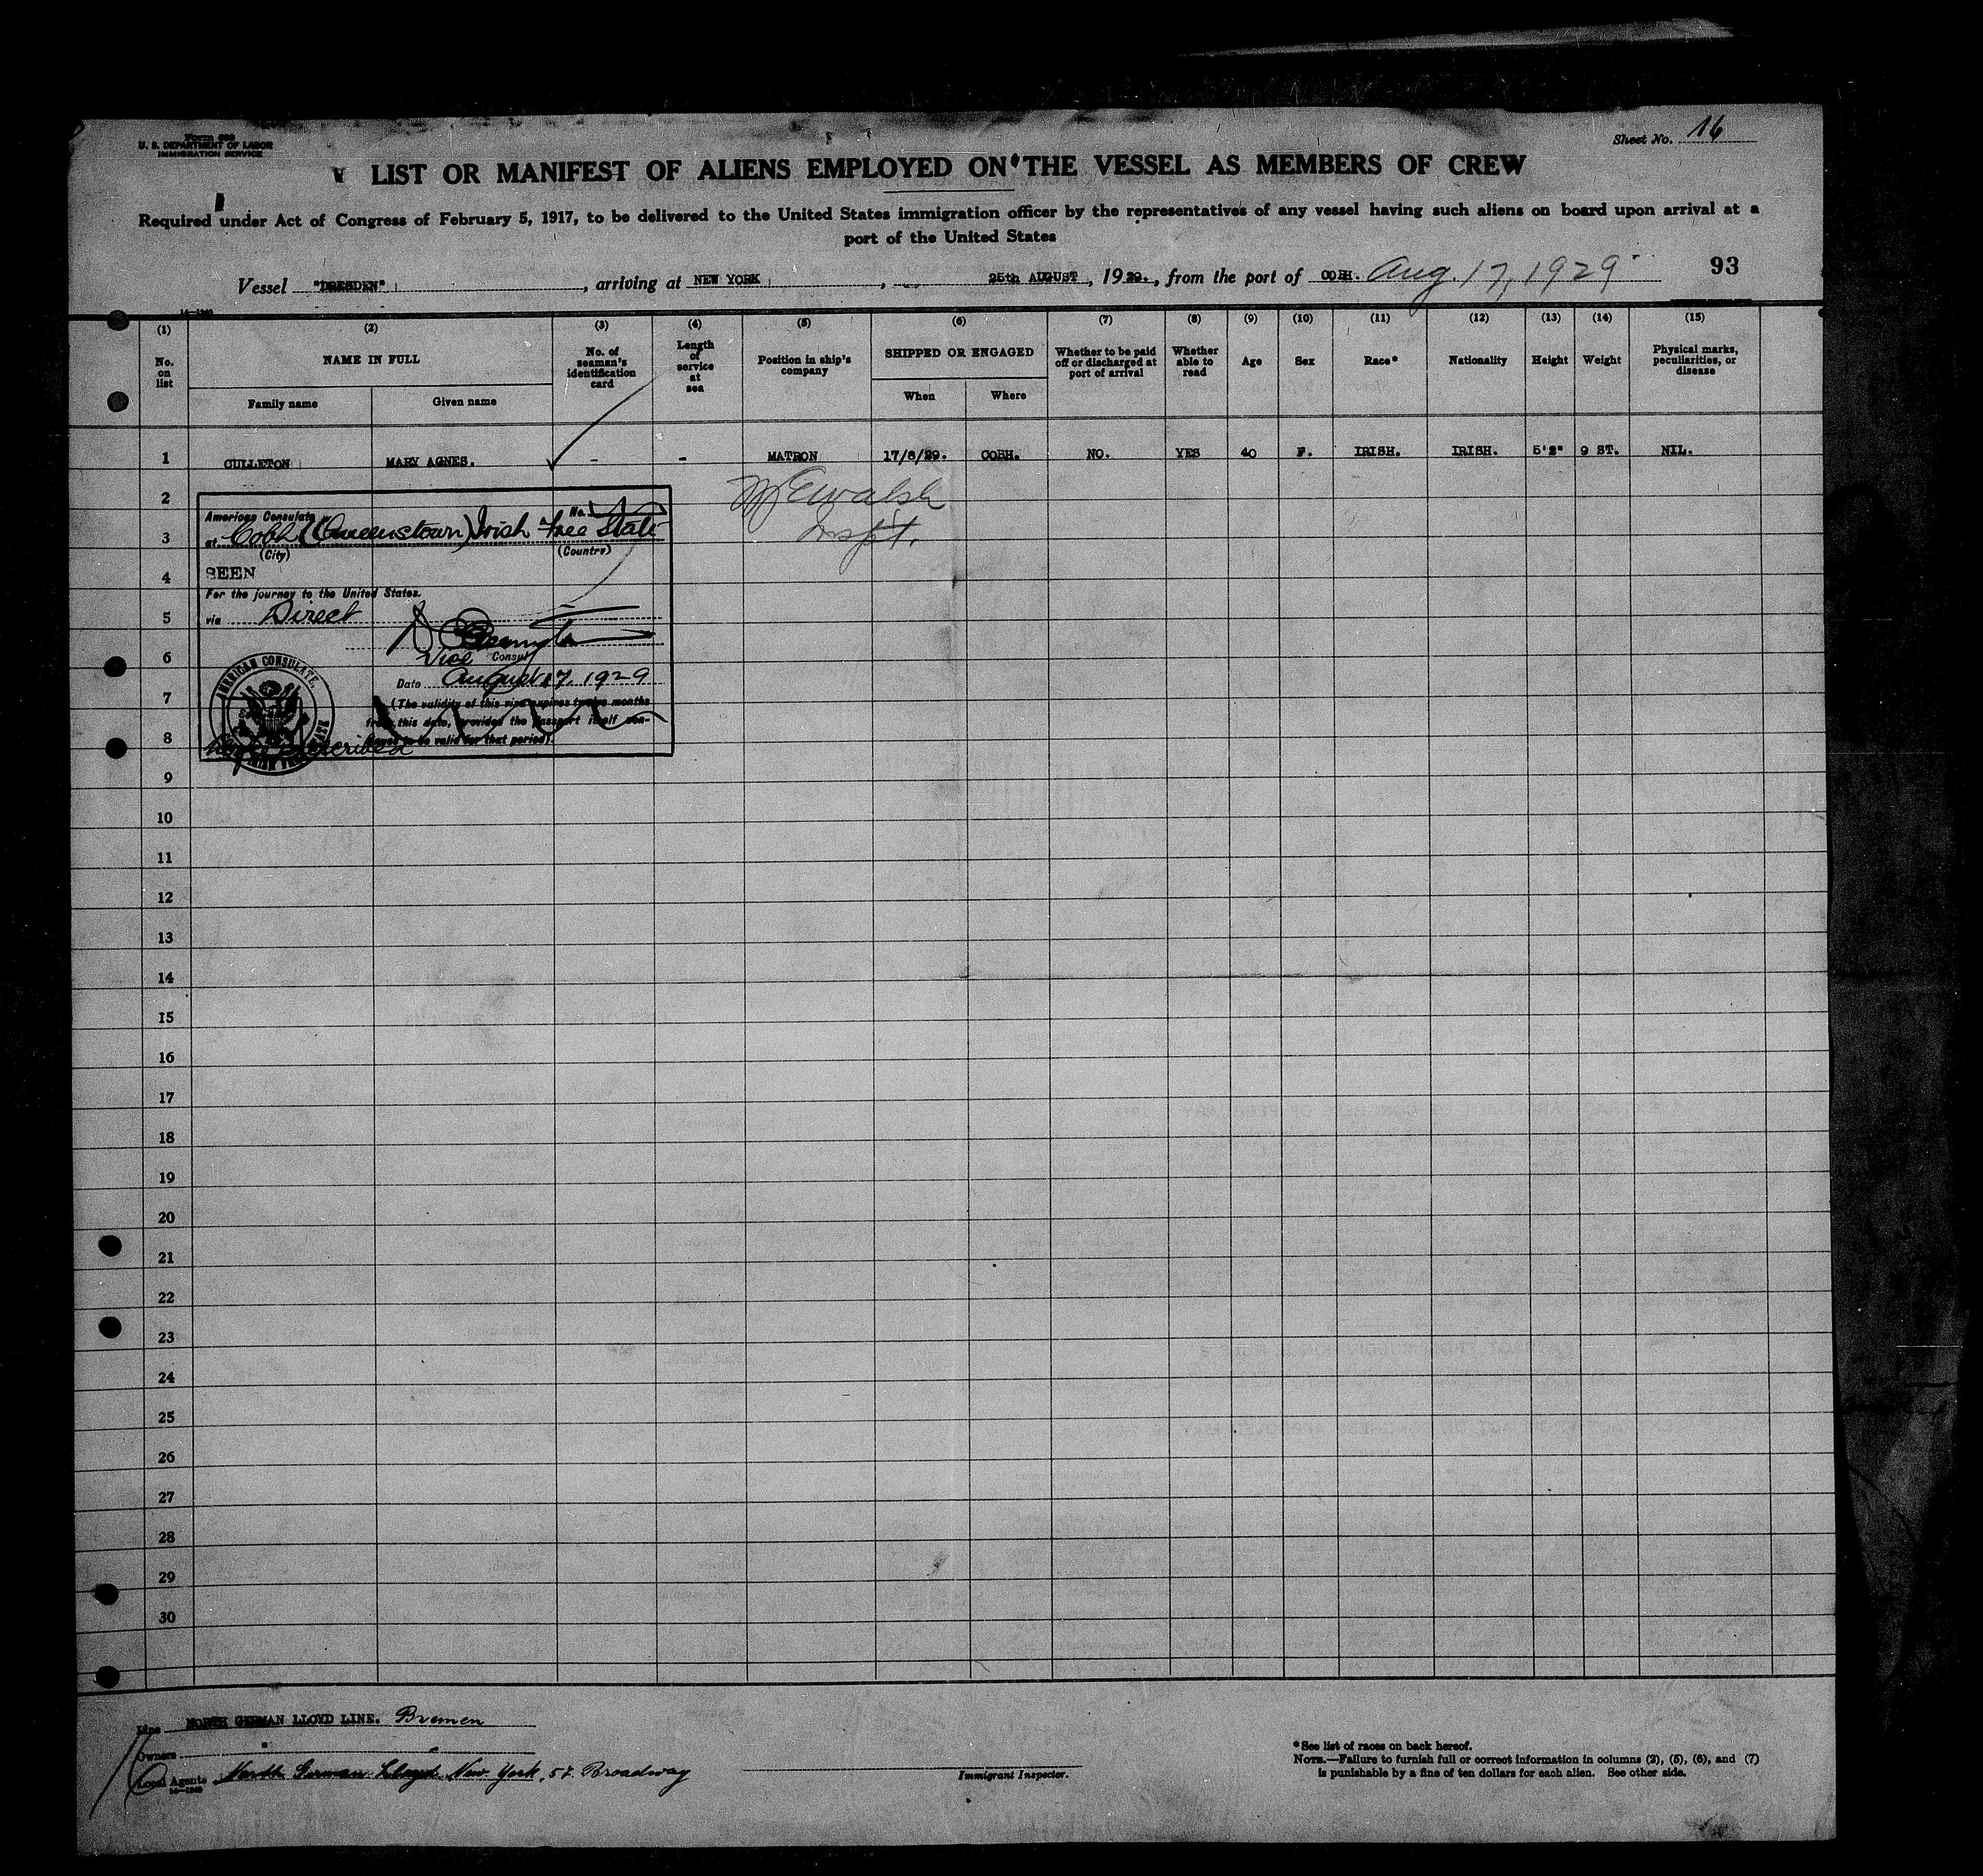 Form 680
U. S. DEPARTMENT OF LABOR
IMMIGRATION SERVICE
Sheet No. 16
LIST OR MANIFEST OF ALIENS EMPLOYED ON THE VESSEL AS MEMBERS OF CREW
Required under Act of Congress of February 5, 1917, to be delivered to the United States immigration officer by the representatives of any vessel having such aliens on board upon arrival at a
port of the United States
Vessel "DRESDEN", arriving at NEW YORK, 25th AUGUST, 1929., from the port of COBH. Aug. 17, 1929
93
14—1240
(1) (2) (3) (4) (5) (6) (7) (8) (9) (10) (11) (12) (13) (14) (15)
No. on list
NAME IN FULL
Family name
Given name
No. of seaman's identification card
Length of service at sea
Position in ship's company
SHIPPED OR ENGAGED
When
Where
Whether to be paid off or discharged at port of arrival
Whether able to read
Age
Sex
Race*
Nationality
Height
Weight
Physical marks, peculiarities, or disease
1 CULLETON MARY AGNES. - - MATRON 17/8/29. COBH. NO. YES 40 F. IRISH. IRISH. 5'2" 9 ST. NIL.
2
3
4
5
6
7
8
9
10
11
12
13
14
15
16
17
18
19
20
21
22
23
24
25
26
27
28
29
30
Walsh
Inspt.
American Consulate No.
at Cobh (Queenstown) Irish Free State
(City) (Country)
SEEN
For the journey to the United States.
via Direct
Vice Consul
Date August 17, 1929
(The validity of this visa expires twelve months
from this date, provided the passport itself con-
tinues to be valid for that period).
AMERICAN CONSULATE,
Line NORTH GERMAN LLOYD LINE. Bremen
Owners "
Local Agents North German Lloyd New York, 57 Broadway
Immigrant Inspector.
*See list of races on back hereof.
NOTE.—Failure to furnish full or correct information in columns (2), (5), (6), and (7)
is punishable by a fine of ten dollars for each alien. See other side.